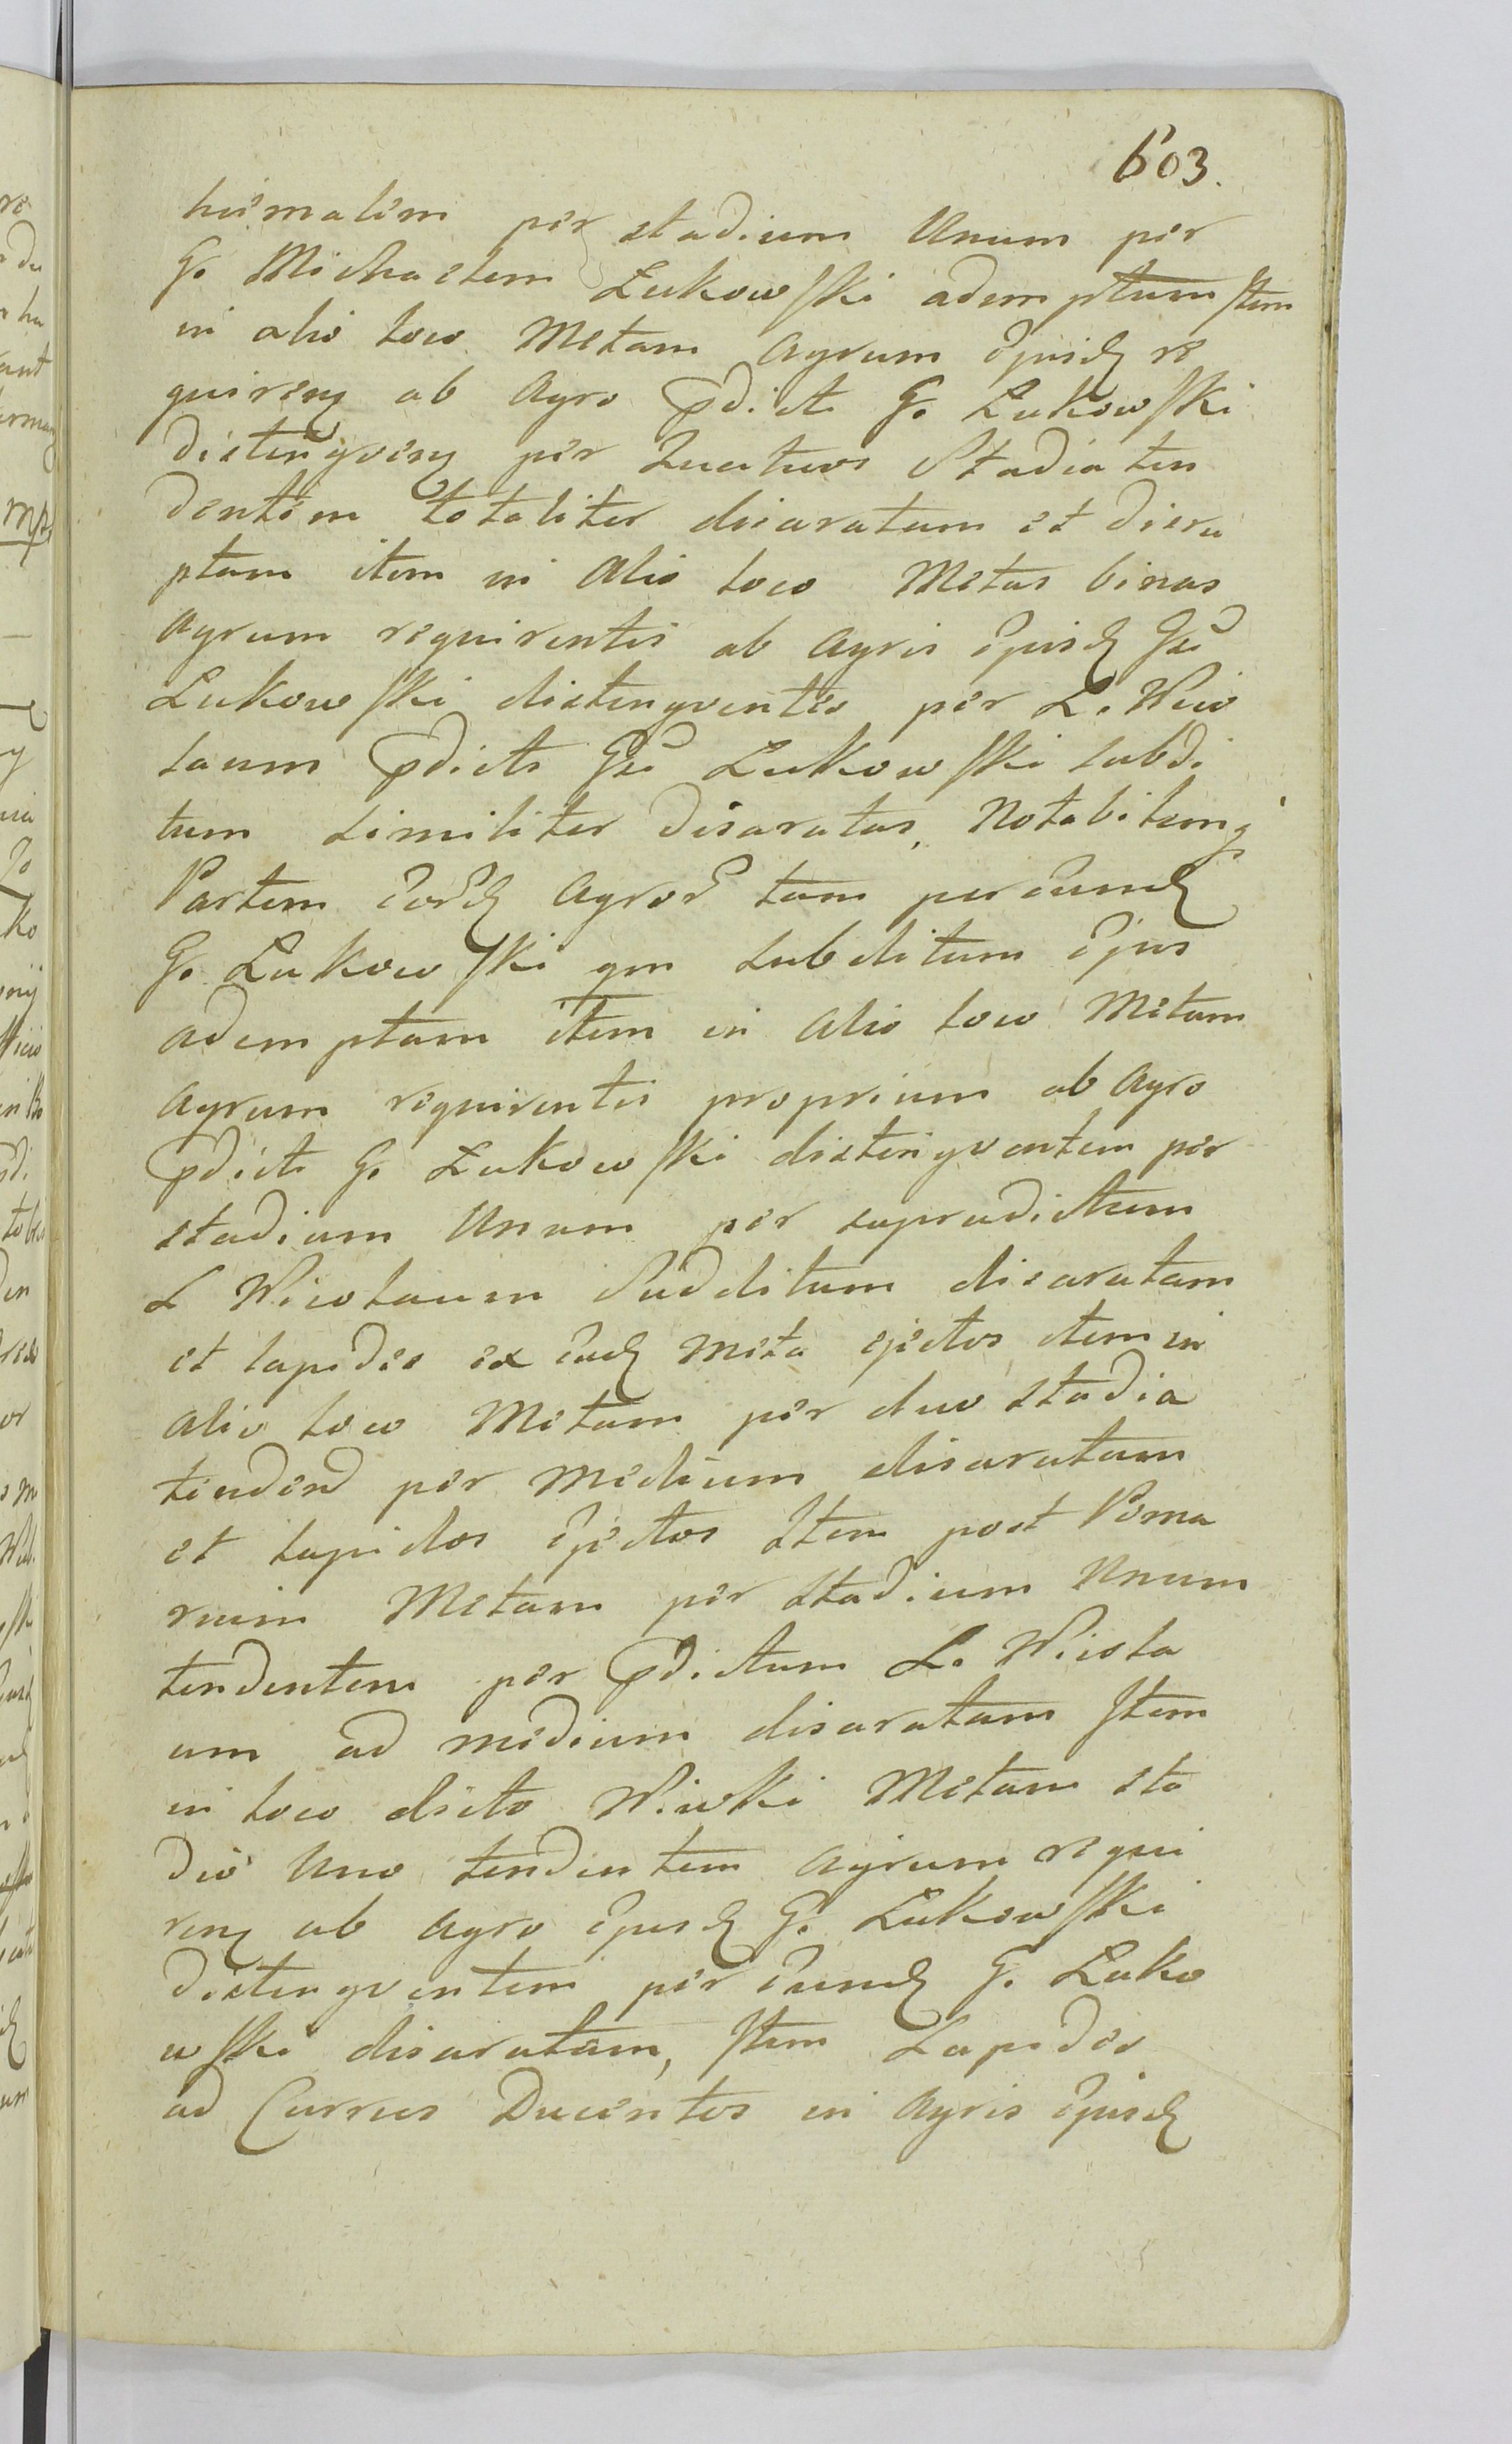 603.
hiemalem per stadium Unum per
G. Michaelem Łukowski ademptum Item
in alio loco Metam Agrum Ejusd re
quirens ab Agro pdicti G. Łukowski
distingvens per Quatuor Stadia ten
dentem totaliter disaratam et diru
ptam item in Alio loco Metas binas
Agrum requirentis ab Agris Ejusd Gsi
Łukowski distingventes per L. Wiio
laum pdicti Gsi Lukowski subdi
tum similiter disaratas, Notabilemq
Partem Eord Agror tam per Eund
G. Lukowski qm Subditum Ejus
ademptam item in Alio loco Metam
Agrum requirentis proprium ab Agro
pdicti G. Lukowski distingventem per
stadium Unum per supradictum
L Wiiolaum Sudditum disaratam
et lapides ex Ead Meta ejectos item in
Alio loco Metam per duo stadia
tendend per Medium disaratam
et lapides Ejectos Item post Poma
rium Metam per Stadium Unum
tendentem per pdictum L. Wiiola
um ad medium disaratam Item
in loco dicto Wiwki Metam sta
dio Uno tendentem Agrum requi
rens ab Agro Ejusd G. Łukowski
distingventem per Eund G. Łuko
wski disaratam, Item Lapides
ad Currus Ducentos in Agris Ejusd